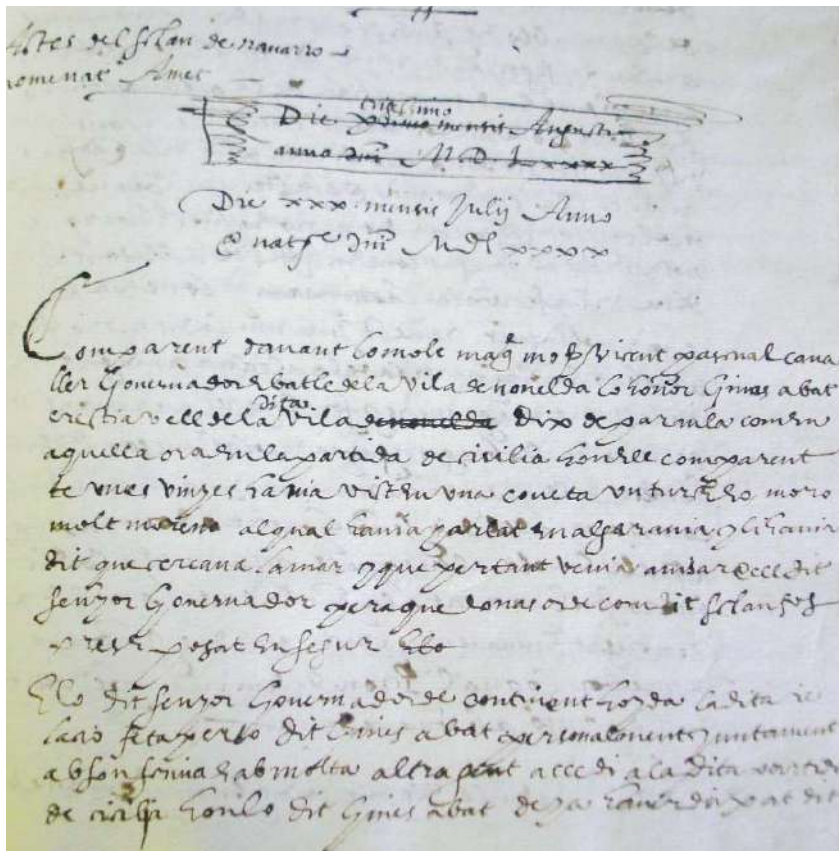 Actes del sclau de navarro
nomenat Amet
trigessimo
Die primo mensis Augusti
anno dni M. D. Lxxxx
Die xxx mensis Julij Anno
a nate dni MDlxxxx
Comparent davant lo molt magch mosen Vicent pascual cava
ller Governador e batle de la vila de nonelda lo honor Gines abat
cristia vell de la dita vila de nonelda dix de paraula com en
aquella ora en la partida de cicilia hon ell comparent
te unes vinyes havia vist en una coveta un turch o moro
molt moreno al qual havia parlat en algaravia y li havia
dit que cercava la mar y que per tant venia avisar a ell dit
senyor Governador pera que donas orde com dit sclau fos
pres e posat en segur E lo
E lo dit senyor Governador de continent hoyda la dita re
lacio feta per lo dit Gines abat personalment juntament
ab son scriva e ab molta altra gent accedi a la dita partida
de cicilia hon lo dit Gines abat deya haver deixat dit